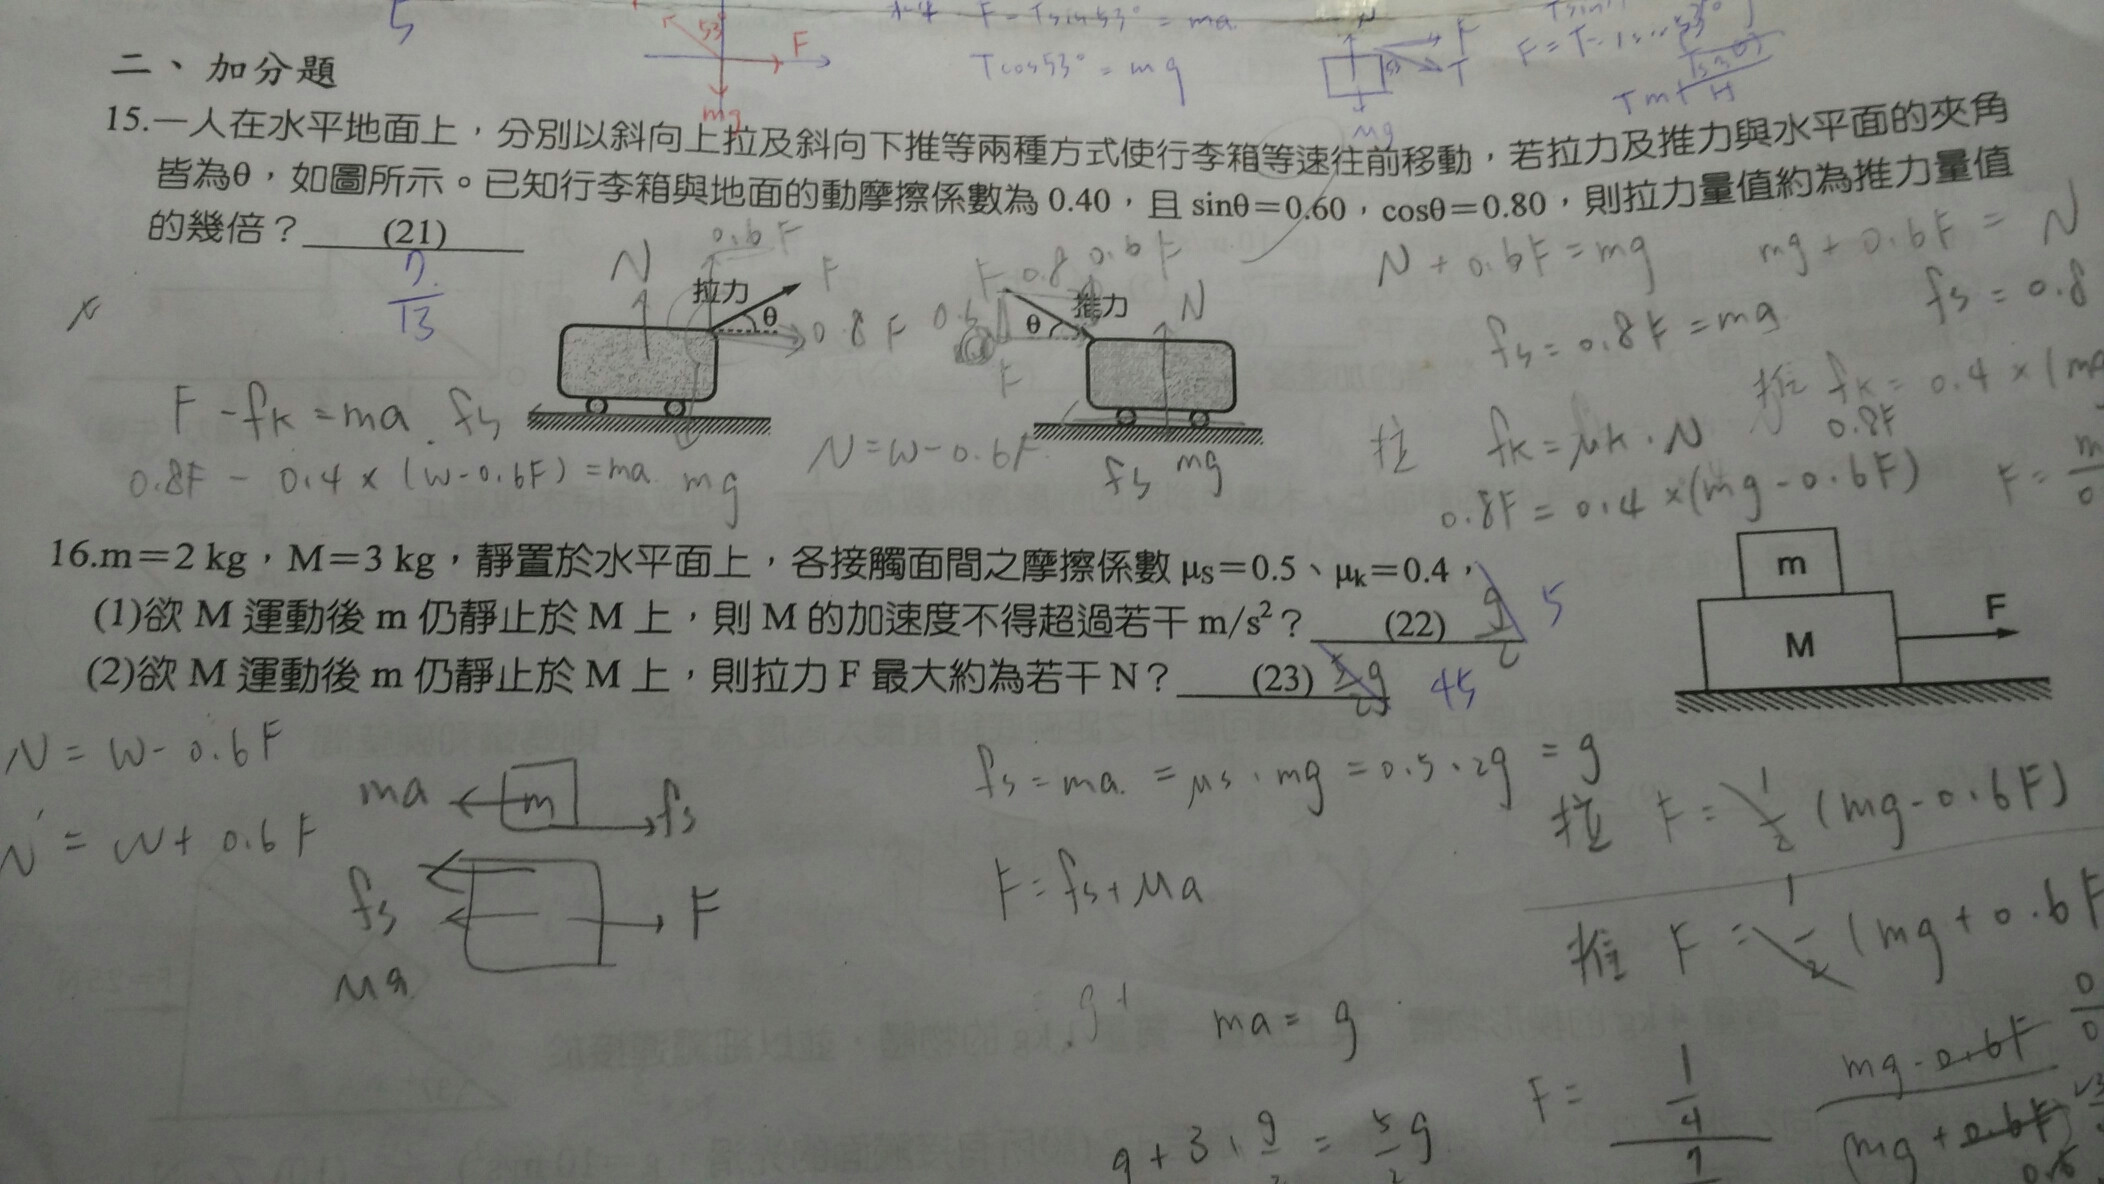 5
53°
F
mg
F - Tsin53° = ma
Tcos53° = mg
N
F
T
53
mg
二、加分題
15.一人在水平地面上，分別以斜向上拉及斜向下推等兩種方式使行李箱等速往前移動，若拉力及推力與水平面的夾角
皆為θ，如圖所示。已知行李箱與地面的動摩擦係數為 0.40，且 sinθ＝0.60，cosθ＝0.80，則拉力量值約為推力量值
的幾倍？ (21)
7
13
N
0.6F
拉力
F
θ
0.8F
F
0.8
0.6F
推力
θ
N
F
fs
mg
fs
mg
N + 0.6F = mg
mg + 0.6F = N
fs = 0.8F = mg
fs = 0.8
F - fk = ma
0.8F - 0.4 × (W-0.6F) = ma
N = W - 0.6F
拉 fk = μk · N
0.8F = 0.4 × (mg - 0.6F)
推 fk = 0.4 × (m
0.8F
F =
16.m＝2 kg，M＝3 kg，靜置於水平面上，各接觸面間之摩擦係數 μs＝0.5、μk＝0.4，
(1)欲 M 運動後 m 仍靜止於 M 上，則 M 的加速度不得超過若干 m/s²？ (22) 5
(2)欲 M 運動後 m 仍靜止於 M 上，則拉力 F 最大約為若干 N？ (23) 45
m
M
F
N = W - 0.6F
N' = W + 0.6F
ma
m
fs
fs
F
Ma
fs = ma = μs · mg = 0.5 · 2g = g
F = fs + Ma
拉 F = 1/2 (mg - 0.6F)
推 F = 1/2 (mg + 0.6F
ma = g
g + 3 · g/2 = 5/2 g
F =
1
4
mg - 0.6F
mg + 0.6F